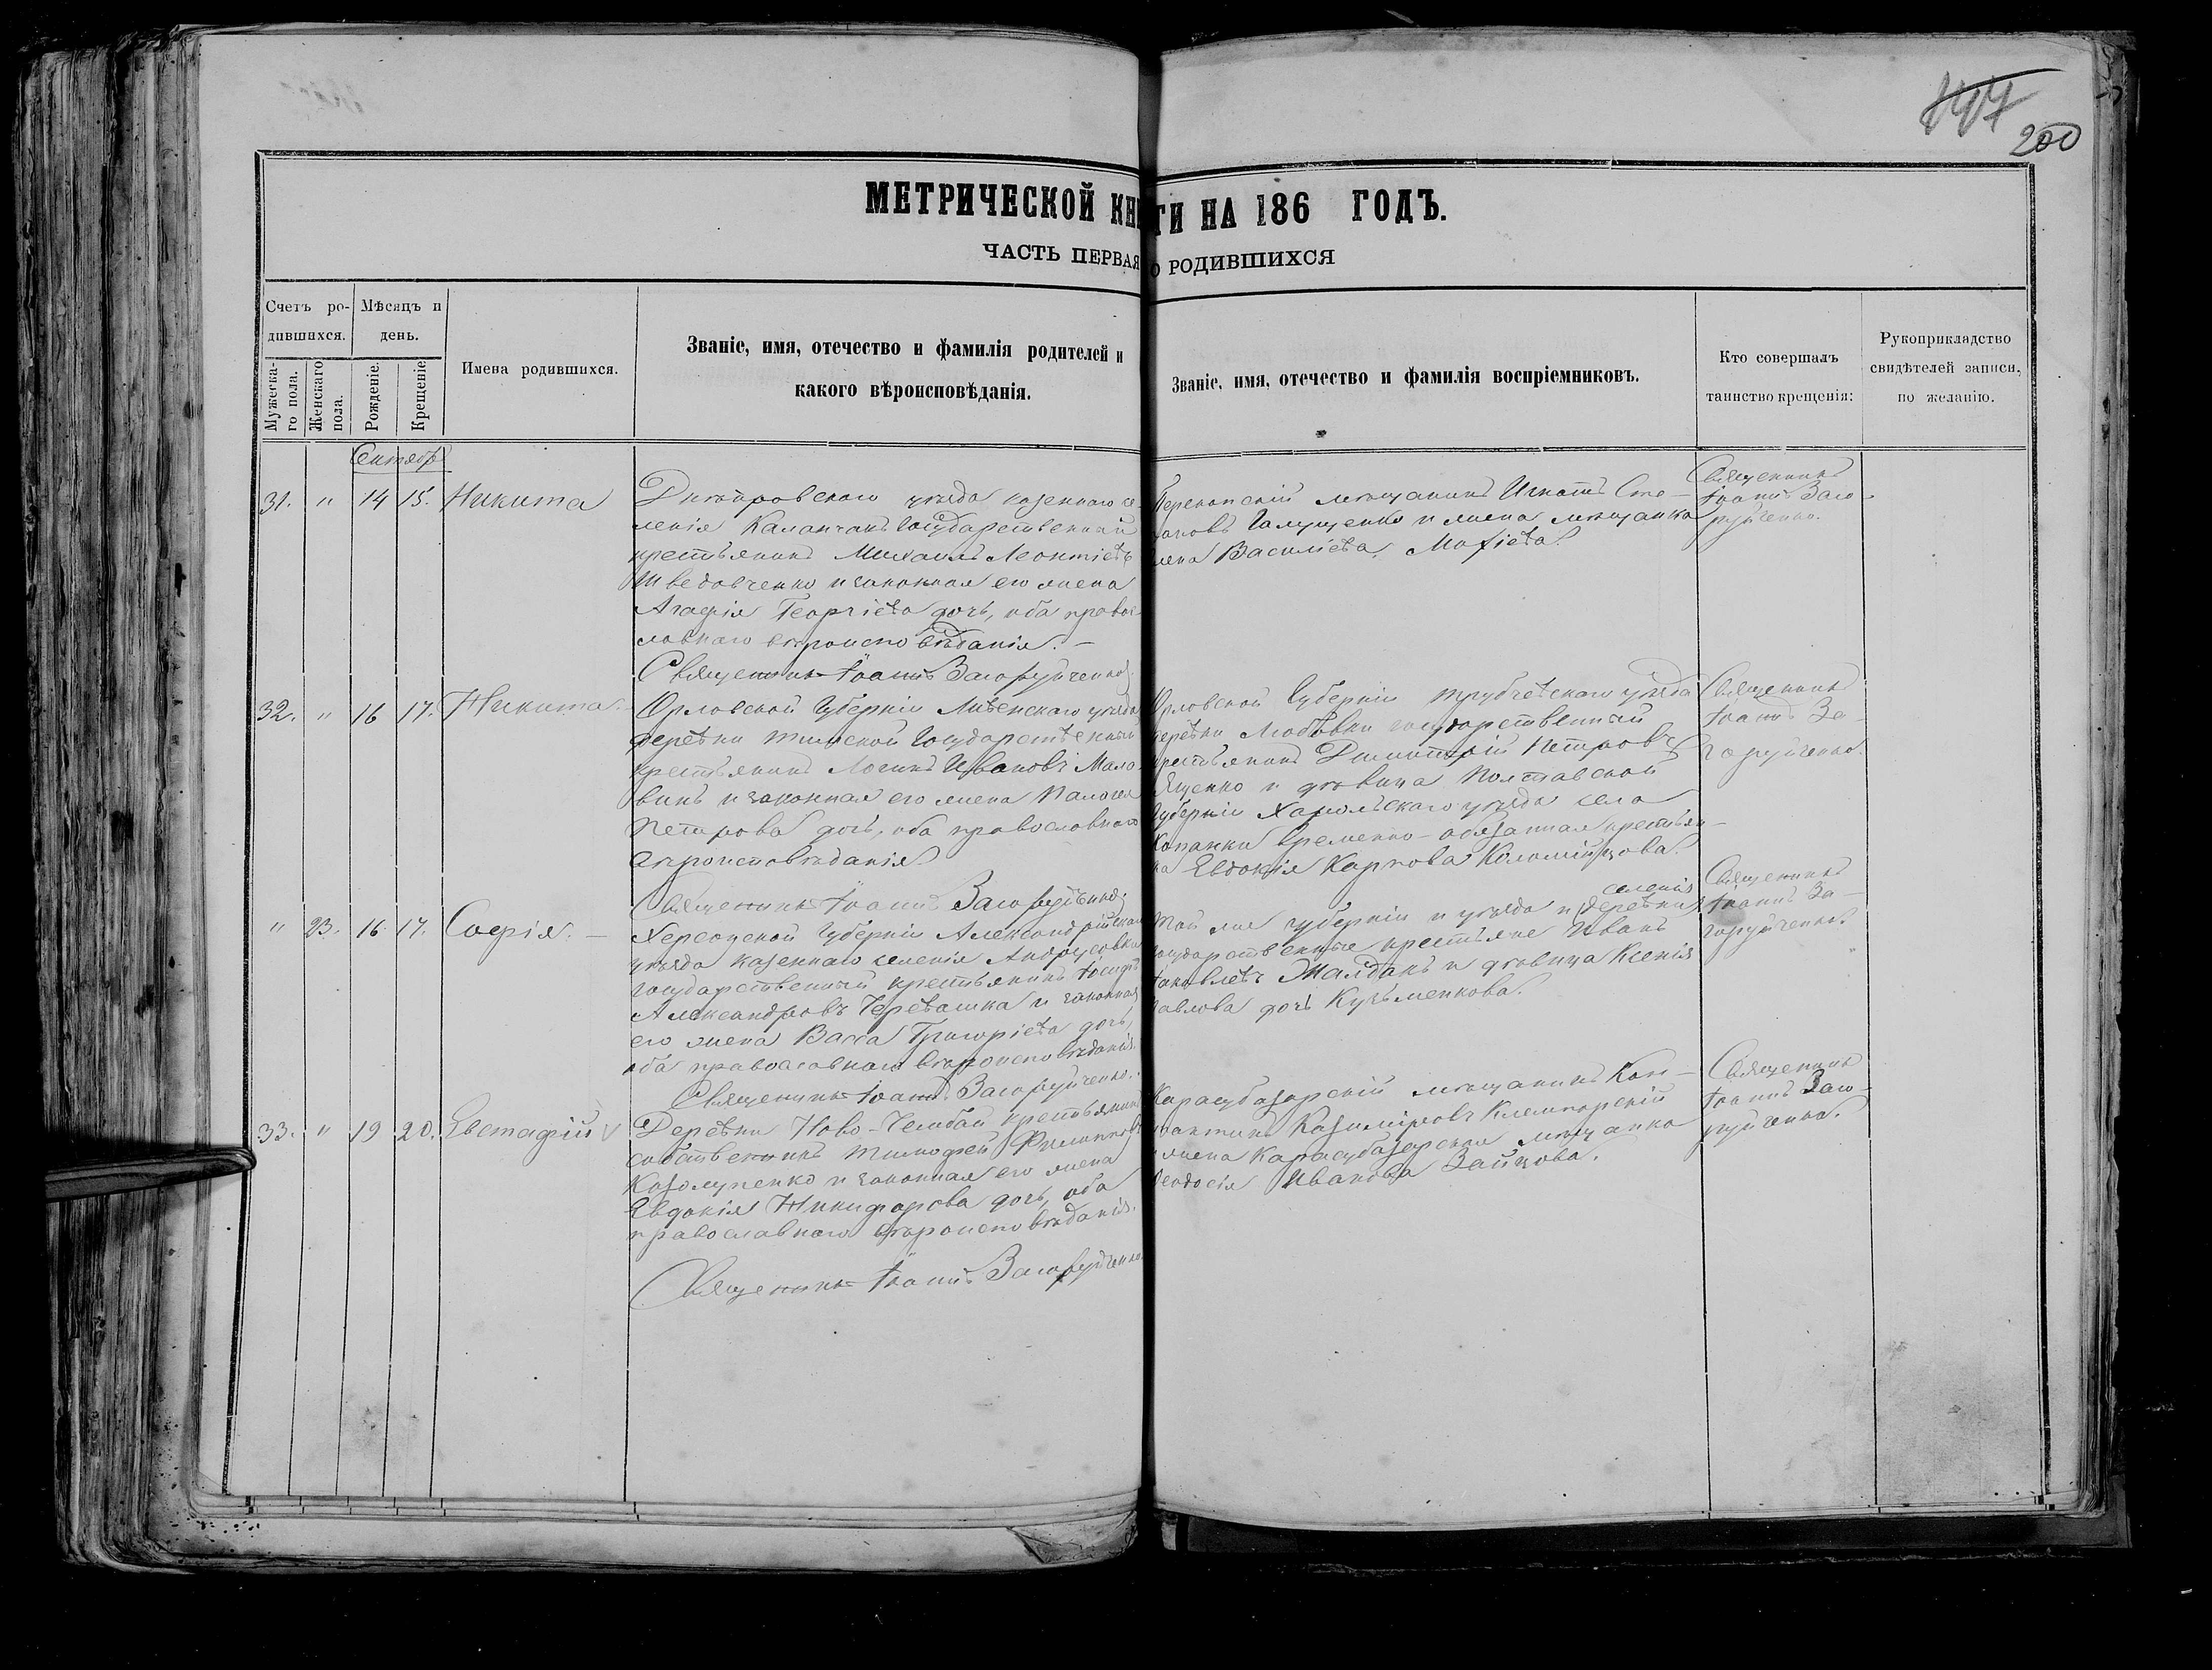 200
МЕТРИЧЕСКОЙ КНИГИ НА 186 ГОДЪ.
ЧАСТЬ ПЕРВАЯ О РОДИВШИХСЯ
Счетъ ро-
дившихся.
Мѣсяцъ и
день.
Мужеска-
го пола.
Женскаго
пола.
Рожденіе.
Крещеніе.
Имена родившихся.
Званіе, имя, отечество и фамилія родителей и
какого вѣроисповѣданія.
Званіе, имя, отечество и фамилія воспріемниковъ.
Кто совершалъ
таинство крещенія:
Рукоприкладство
свидѣтелей записи,
по желанію.
Сентябр
31. " 14 15. Никита
Днѣпровскаго уѣзда казеннаго се-
ленія Каланчакъ Государственный
крестьянинъ Михаилъ Леонтіевъ
Шведовченко и законная его жена
Агафія Георгіева дочь, оба право-
славнаго вѣроисповѣданія. –
Священникъ Іоаннъ Загоруйченко
Перекопскій мѣщанинъ Игнатъ Сте-
пановъ Галущенко и жена мѣщанка
Василіева
Священникъ
Іоаннъ Заго-
руйченко.
32. " 16 17. Никита. –
Орловской Губерніи Ливенскаго уѣзда
деревни Государственный
крестьянинъ Логинъ Ивановъ Мало-
винъ и законная его жена Пелагея
Петрова дочь, оба православнаго
вѣроисповѣданія
Священникъ Іоаннъ Загоруйченко
Орловской Губерніи Трубчевскаго уѣзда
деревни Любовки государственный
крестьянинъ Димитрій Петровъ
Яценко и дѣвица Полтавской
Губерніи Хорольскаго уѣзда села
Копанки временно-обязанная крестьян-
ка Евдокія Карпова Коломійцова.
Священникъ
Іоаннъ За-
горуйченко.
" 23. 16. 17. Софія. –
Херсонской Губерніи Александрійскаго
уѣзда казеннаго селенія Андрусовки
государственный крестьянинъ Іосифъ
Александровъ Черевашка и законная
его жена Васса Григоріева дочь,
оба православнаго вѣроисповѣданія.
Священникъ Іоаннъ Загоруйченко.
селенія
Той же губерніи и уѣзда и деревни
государственные крестьяне Иванъ
Яковлевъ Жалданъ и дѣвица Ксенія
Павлова дочь Кузьменкова.
Священникъ
Іоаннъ За-
горуйченко.
33. " 19 20. Евстафій
Деревни Ново-Челбай крестьянинъ
собственникъ Тимофей Филиповъ
Козолупенко и законная его жена
Евдокія Никифорова дочь, оба
православнаго вѣроисповѣданія.
Священникъ Іоаннъ Загоруйченко
Карасубазарскій мѣщанинъ Кон-
Казиміровъ
жена Карасубазарская мѣщанка
Феодосія Иванова Зайцова.
Священникъ
Іоаннъ Заго-
руйченко.